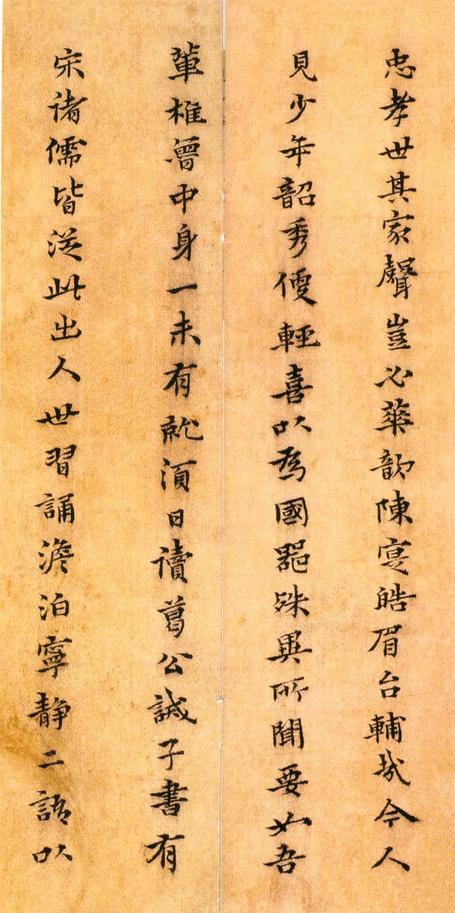 忠孝世其家聲豈必華歆陳寔皓眉台輔哉今人
見少年韶秀便輕喜以爲國器殊異所聞要如吾
輩椎魯中身一未有就須日讀葛公誡子書有
宋諸儒皆從此出人世習誦澹泊寧靜二語以